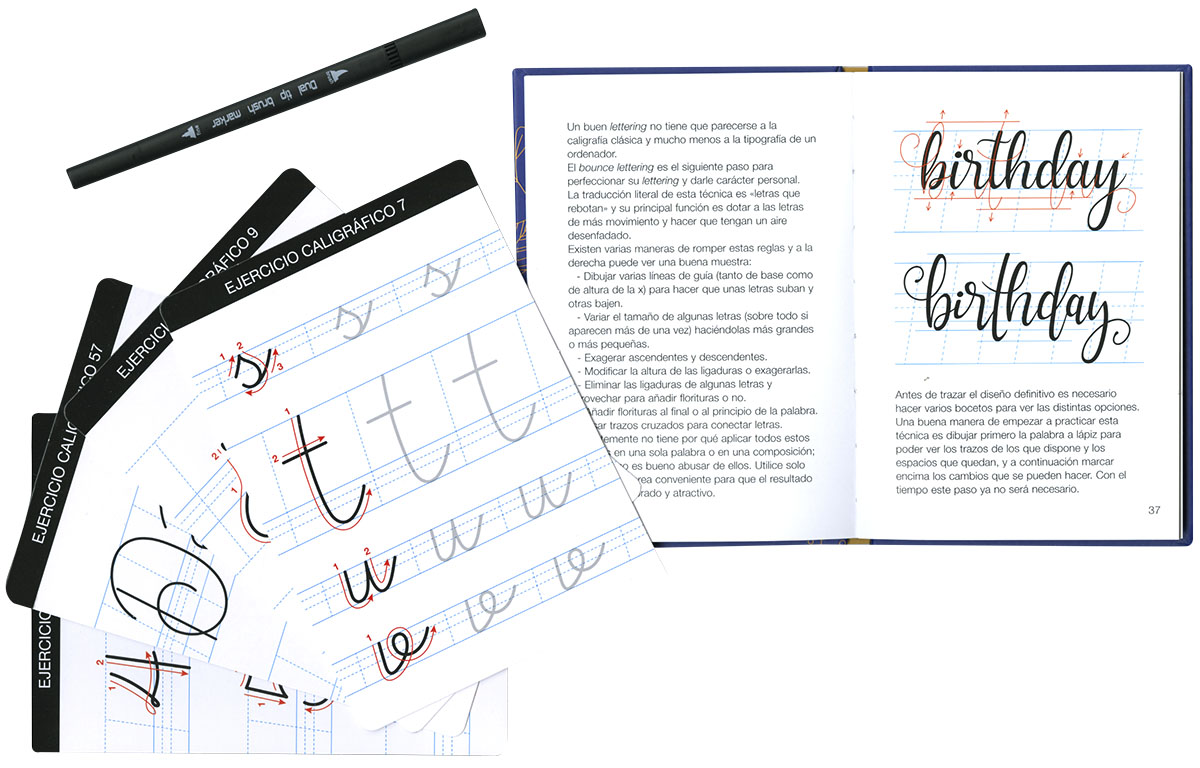 Dual tip brush marker
EJERCICIO CALIGRÁFICO 7
GRÁFICO 9
EJERCICIO CALI
EJERCICIO CALIG
CO 57
EJERCICIO
1 2 3
s s s
2 1
i
1 2
t t t
1 2
u u u
1
v v v
D
1 2
4
1
Un buen lettering no tiene que parecerse a la
caligrafía clásica y mucho menos a la tipografía de un
ordenador.
El bounce lettering es el siguiente paso para
perfeccionar su lettering y darle carácter personal.
La traducción literal de esta técnica es «letras que
rebotan» y su principal función es dotar a las letras
de más movimiento y hacer que tengan un aire
desenfadado.
Existen varias maneras de romper estas reglas y a la
derecha puede ver una buena muestra:
- Dibujar varias líneas de guía (tanto de base como
de altura de la x) para hacer que unas letras suban y
otras bajen.
- Variar el tamaño de algunas letras (sobre todo si
aparecen más de una vez) haciéndolas más grandes
o más pequeñas.
- Exagerar ascendentes y descendentes.
- Modificar la altura de las ligaduras o exagerarlas.
- Eliminar las ligaduras de algunas letras y
rovechar para añadir florituras o no.
ñadir florituras al final o al principio de la palabra.
sar trazos cruzados para conectar letras.
temente no tiene por qué aplicar todos estos
en una sola palabra o en una composición;
o es bueno abusar de ellos. Utilice solo
rea conveniente para que el resultado
rado y atractivo.
birthday
birthday
Antes de trazar el diseño definitivo es necesario
hacer varios bocetos para ver las distintas opciones.
Una buena manera de empezar a practicar esta
técnica es dibujar primero la palabra a lápiz para
poder ver los trazos de los que dispone y los
espacios que quedan, y a continuación marcar
encima los cambios que se pueden hacer. Con el
tiempo este paso ya no será necesario.
37